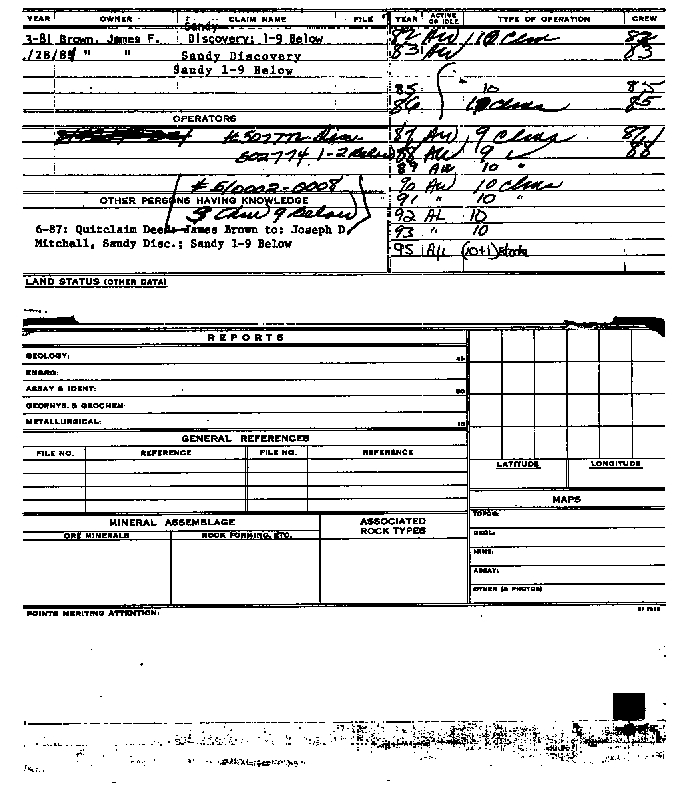 YEAR OWNER CLAIM NAME FILE # YEAR ACTIVE OR IDLE TYPE OF OPERATION CREW
Sandy
3-81 Brown, James F. Discovery; 1-9 Below 82 AW 10 Clms 82
/28/84 " " Sandy Discovery 83 AW 83
Sandy 1-9 Below
85 10 85
86 10 Clms 85
OPERATORS
87 AW 9 Clms 87
502774 1-2 Below 88 AW 9 " 88
89 AW 10 "
# 510002-0008 90 AW 10 Clms
OTHER PERSONS HAVING KNOWLEDGE 91 " 10 "
9 Below 92 AL 10
6-87: Quitclaim Deed- James Brown to: Joseph D. 93 " 10
Mitchell, Sandy Disc.; Sandy 1-9 Below
95 (10+1)
LAND STATUS (OTHER DATA)
REPORTS
GEOLOGY:
ENGRG:
ASSAY & IDENT:
GEOPHYS. & GEOCHEM:
METALLURGICAL:
GENERAL REFERENCES
FILE NO. REFERENCE FILE NO. REFERENCE
LATITUDE LONGITUDE
MAPS
MINERAL ASSEMBLAGE ASSOCIATED ROCK TYPES
ORE MINERALS ROCK FORMING, ETC.
TOPOG:
GEOL:
MINE:
ASSAY:
OTHER (& PHOTOS)
POINTS MERITING ATTENTION: